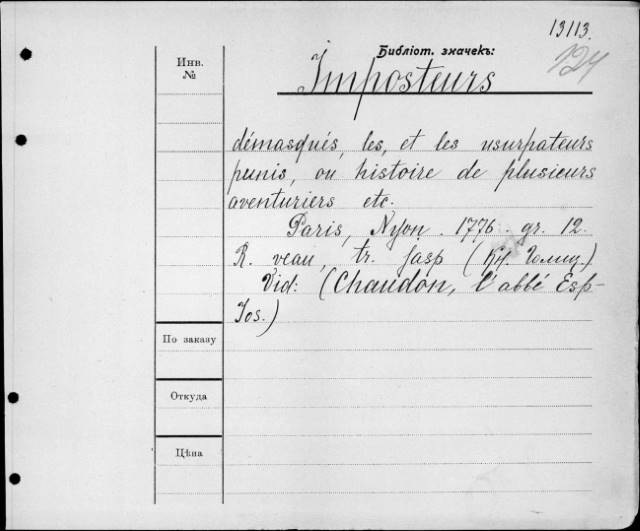 13113.
Библіот. значекъ:
124
Инв.
№
Imposteurs
démasqués, les, et les usurpateurs
punis, ou histoire de plusieurs
aventuriers etc.
Paris, Nyon. 1776. gr. 12.
R. veau, tr. jasp (Кн. Голиц)
Vid: (Chaudon, l'abbé Esp-
Jos.)
По заказу
Откуда
Цѣна